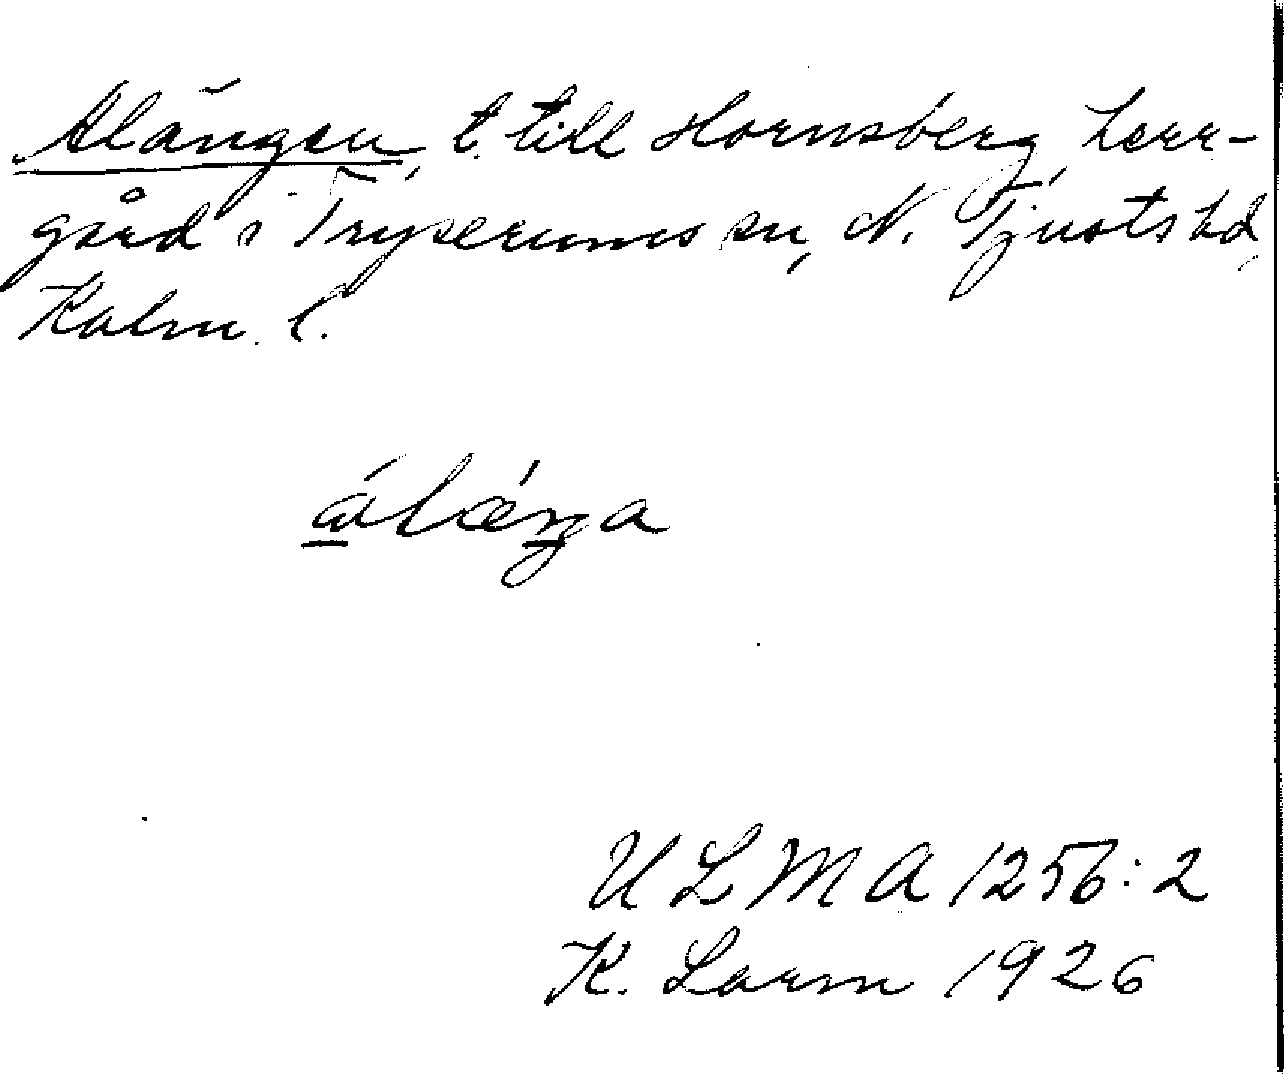 Alängen, t. till Hornsberg, herr-
gård i Tryserums sn, N. Tjusts hd,
Kalm. l.
ULMA 1256:2
K. Lorm 1926